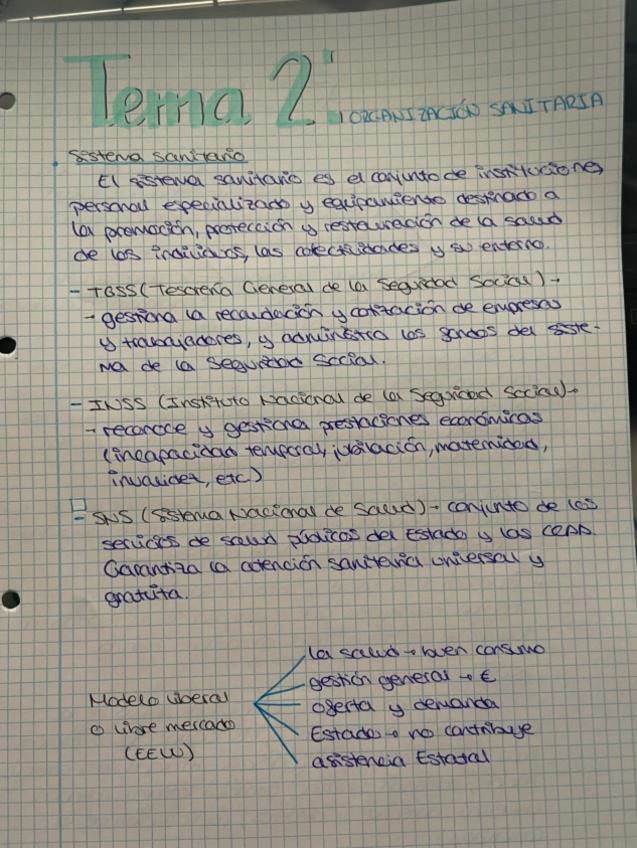 Tema 2: ORGANIZACIÓN SANITARIA
Sistema sanitario
El sistema sanitario es el conjunto de instituciones,
personal especializado y equipamiento destinado a
la promoción, protección y restauración de la salud
de los individuos, las colectividades y su entorno.
- TGSS (Tesorería General de la Seguridad Social) →
→ gestiona la recaudación y cotización de empresas
y trabajadores, y administra los fondos del siste-
ma de la Seguridad Social.
- INSS (Instituto Nacional de la Seguridad Social) →
→ reconoce y gestiona prestaciones económicas
(incapacidad temporal, jubilación, maternidad,
invalidez, etc)
- SNS (Sistema Nacional de Salud) → conjunto de los
servicios de salud públicos del Estado y las CCAA.
Garantiza la atención sanitaria universal y
gratuita.
Modelo liberal
o libre mercado
(EEUU)
la salud → buen consumo
gestión general → €
oferta y demanda
Estado → no contribuye
asistencia Estatal